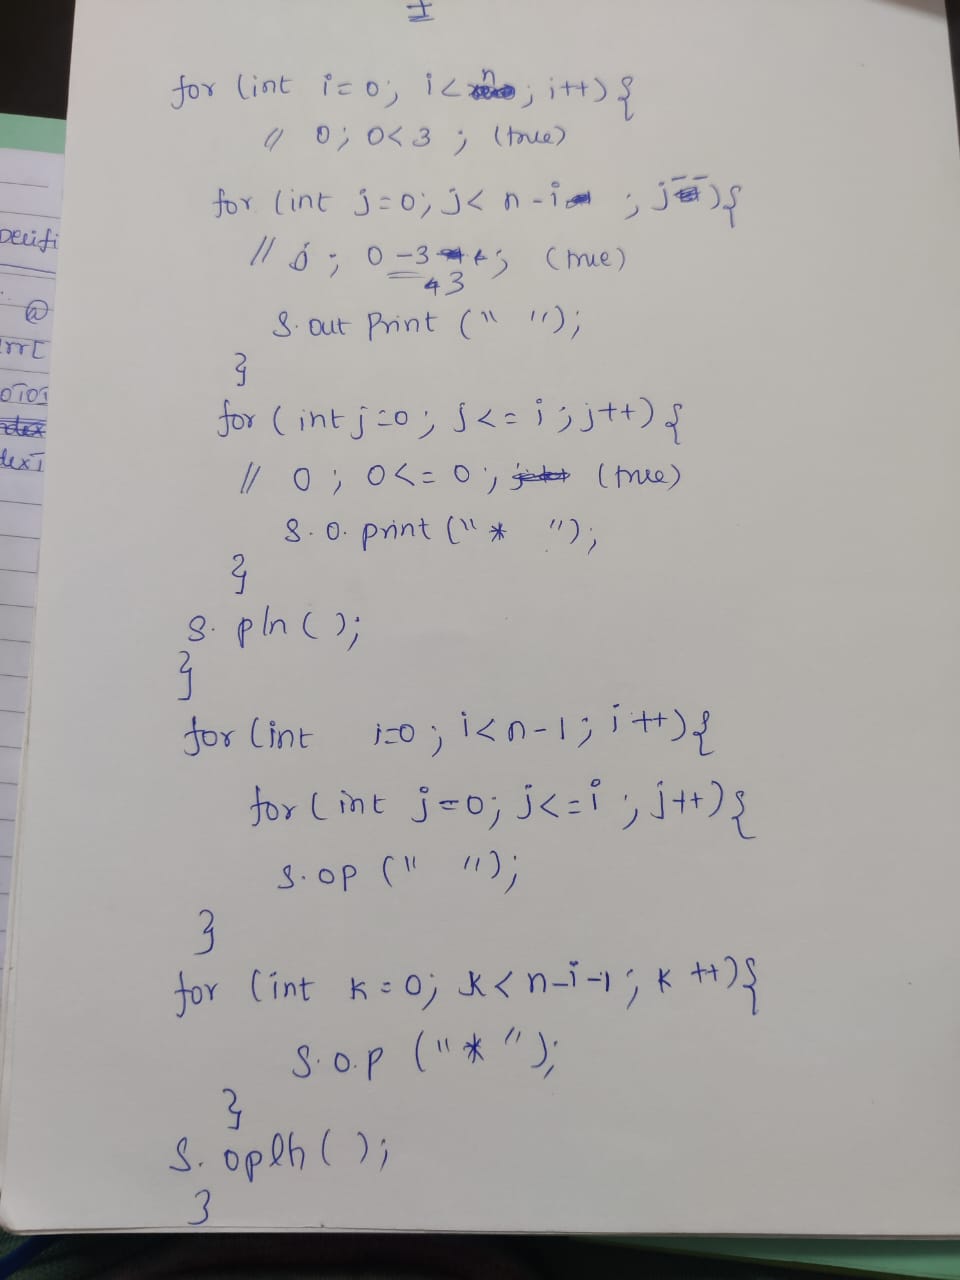 for (int i=0; i<n; i++){
// 0; 0<3 ; (true)
for (int j=0; j< n-i ; j--){
// 0; 0-3 ; (true)
43
S. out Print (" ");
}
for (int j=0; j<=i; j++){
// 0; 0<=0; (true)
S.O. print ("* ");
}
S. pln ();
}
for (int i=0; i<n-1; i++){
for (int j=0; j<=i; j++){
S.op (" ");
}
for (int k=0; k<n-i-1; k++){
S.o.p ("*");
}
S. opln ();
}
Decifi
@
dex